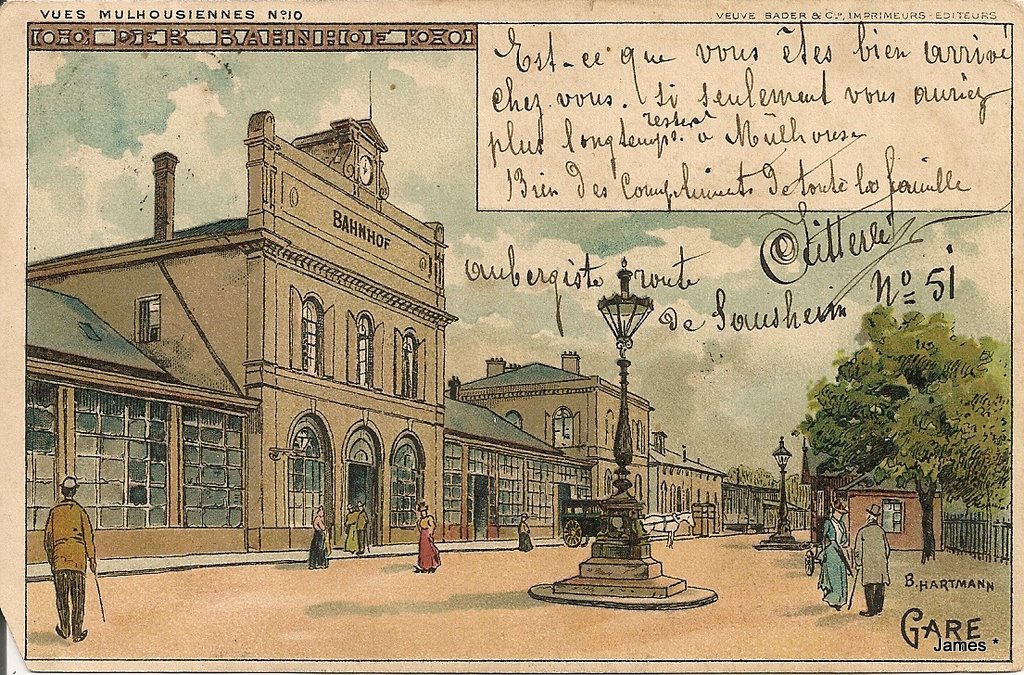 VUES MULHOUSIENNES Nº10
VEUVE BADER & Cie, IMPRIMEURS-EDITEURS
DER BAHNHOF
Est-ce que vous êtes bien arrivé
chez vous. si seulement vous auriez
plus longtemps. rester à Mülhouse
Bien des Compliments de toute la famille
aubergiste route
de Sausheim Nº 51
BAHNHOF
B. HARTMANN
GARE.
James *